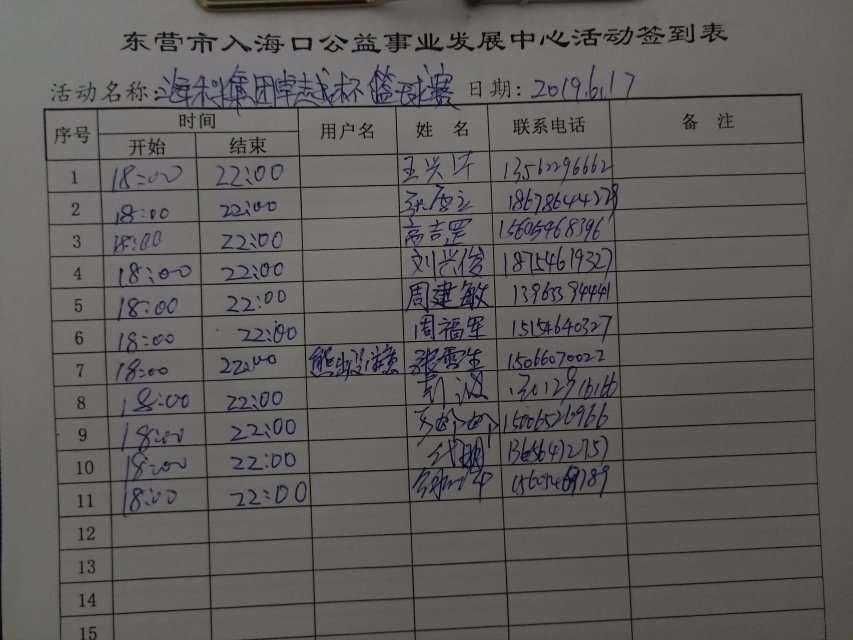 东营市入海口公益事业发展中心活动签到表
活动名称: 海科集团卓越杯篮球赛 日期: 2019.6.17
序号 时间 用户名 姓名 联系电话 备注
开始 结束
1 18:00 22:00 13562296662
2 18:00 22:00
3 18:00 22:00 高吉罡 15605468396
4 18:00 22:00 刘兴俊 18754619327
5 18:00 22:00 周建敏 13963394441
6 18:00 22:00 周福军 15154640327
7 18:00 22:00 张雪生 15066070022
8 18:00 22:00
9 18:00 22:00 15006526966
10 18:00 22:00
11 18:00 22:00
12
13
14
15